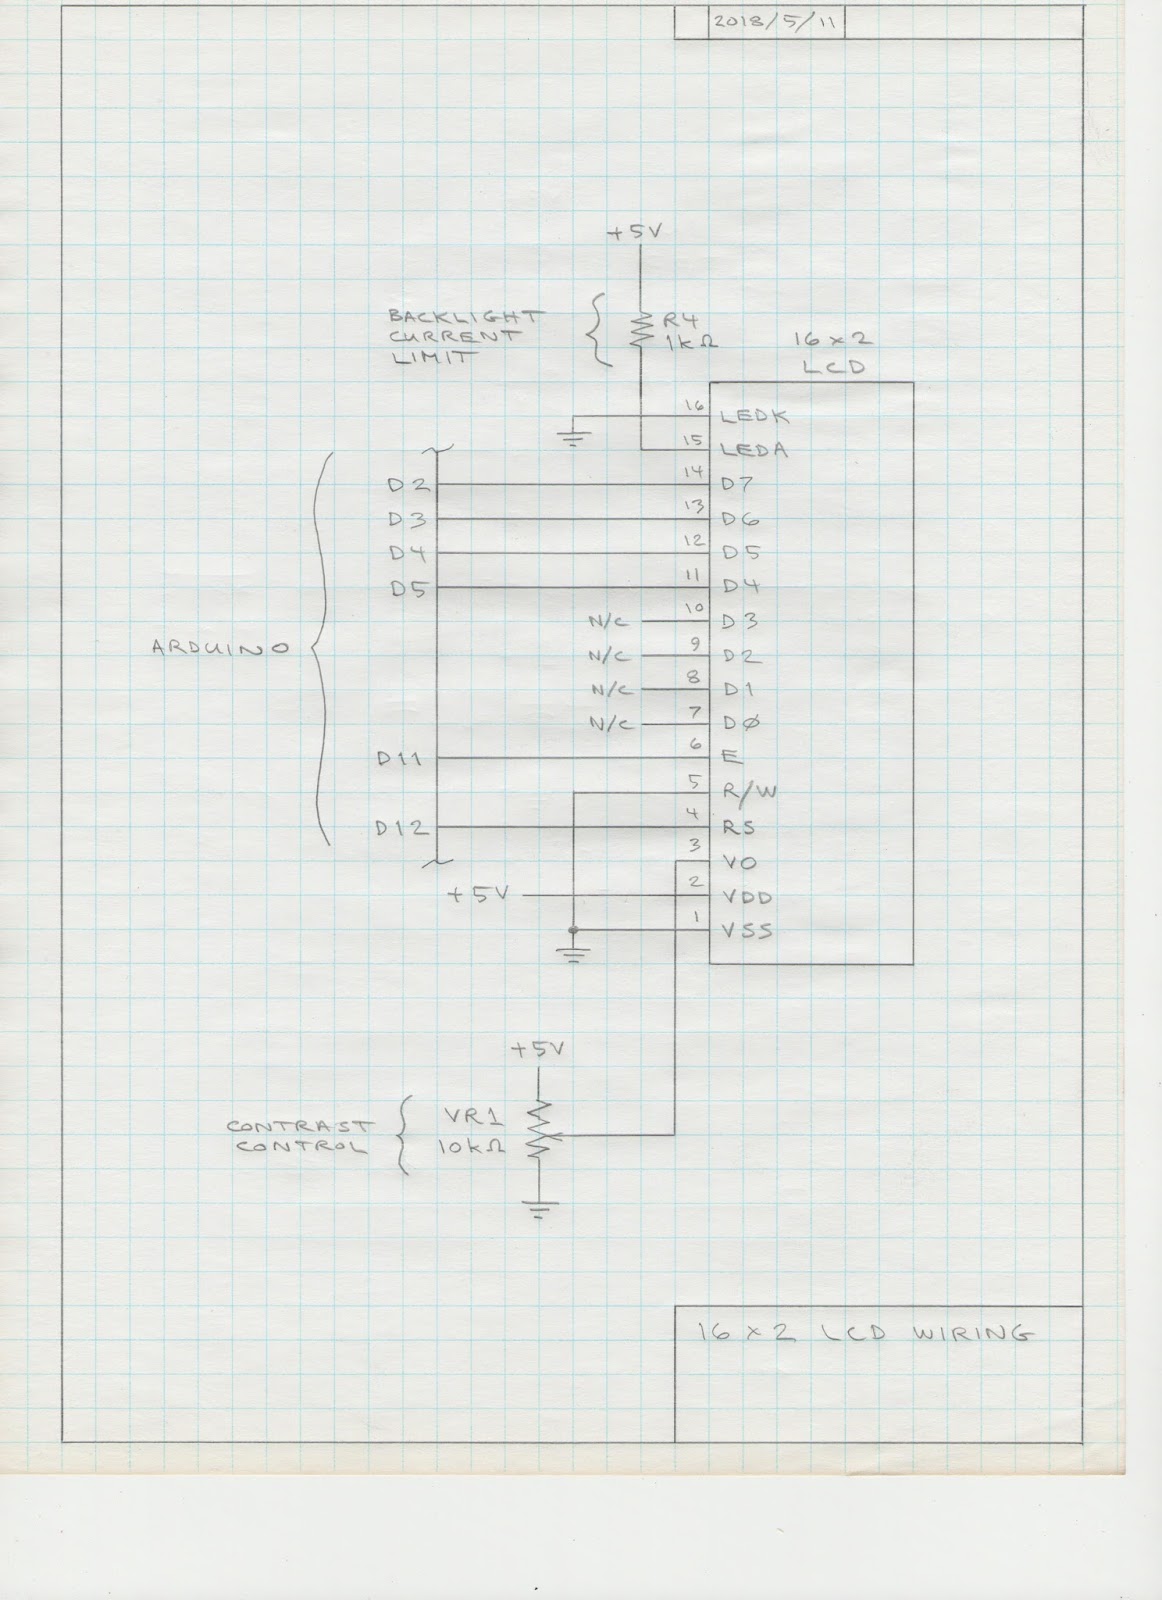 2018/5/11
+5V
BACKLIGHT
CURRENT
LIMIT
R4
1kΩ
16x2
LCD
16 LEDK
15 LEDA
D2 14 D7
D3 13 D6
D4 12 D5
D5 11 D4
N/C 10 D3
ARDUINO
N/C 9 D2
N/C 8 D1
N/C 7 DØ
D11 6 E
5 R/W
D12 4 RS
3 VO
+5V 2 VDD
1 VSS
+5V
CONTRAST
CONTROL
VR1
10kΩ
16x2 LCD WIRING